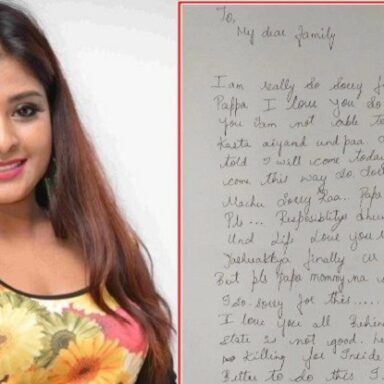 To,
My dear family
I am really so sorry
Pappa I love you so
you I am not able to
Kasta aiyand und paa
told I will come today
come this way so
Machu Sorry Raa... Papa
Pls... Resposiblitys
Und love you
finally
But pls Papa mommy na
I do sorry for this.....
I love you all Behin
state is not good. he
Killing for Inside
Bitter to do this I